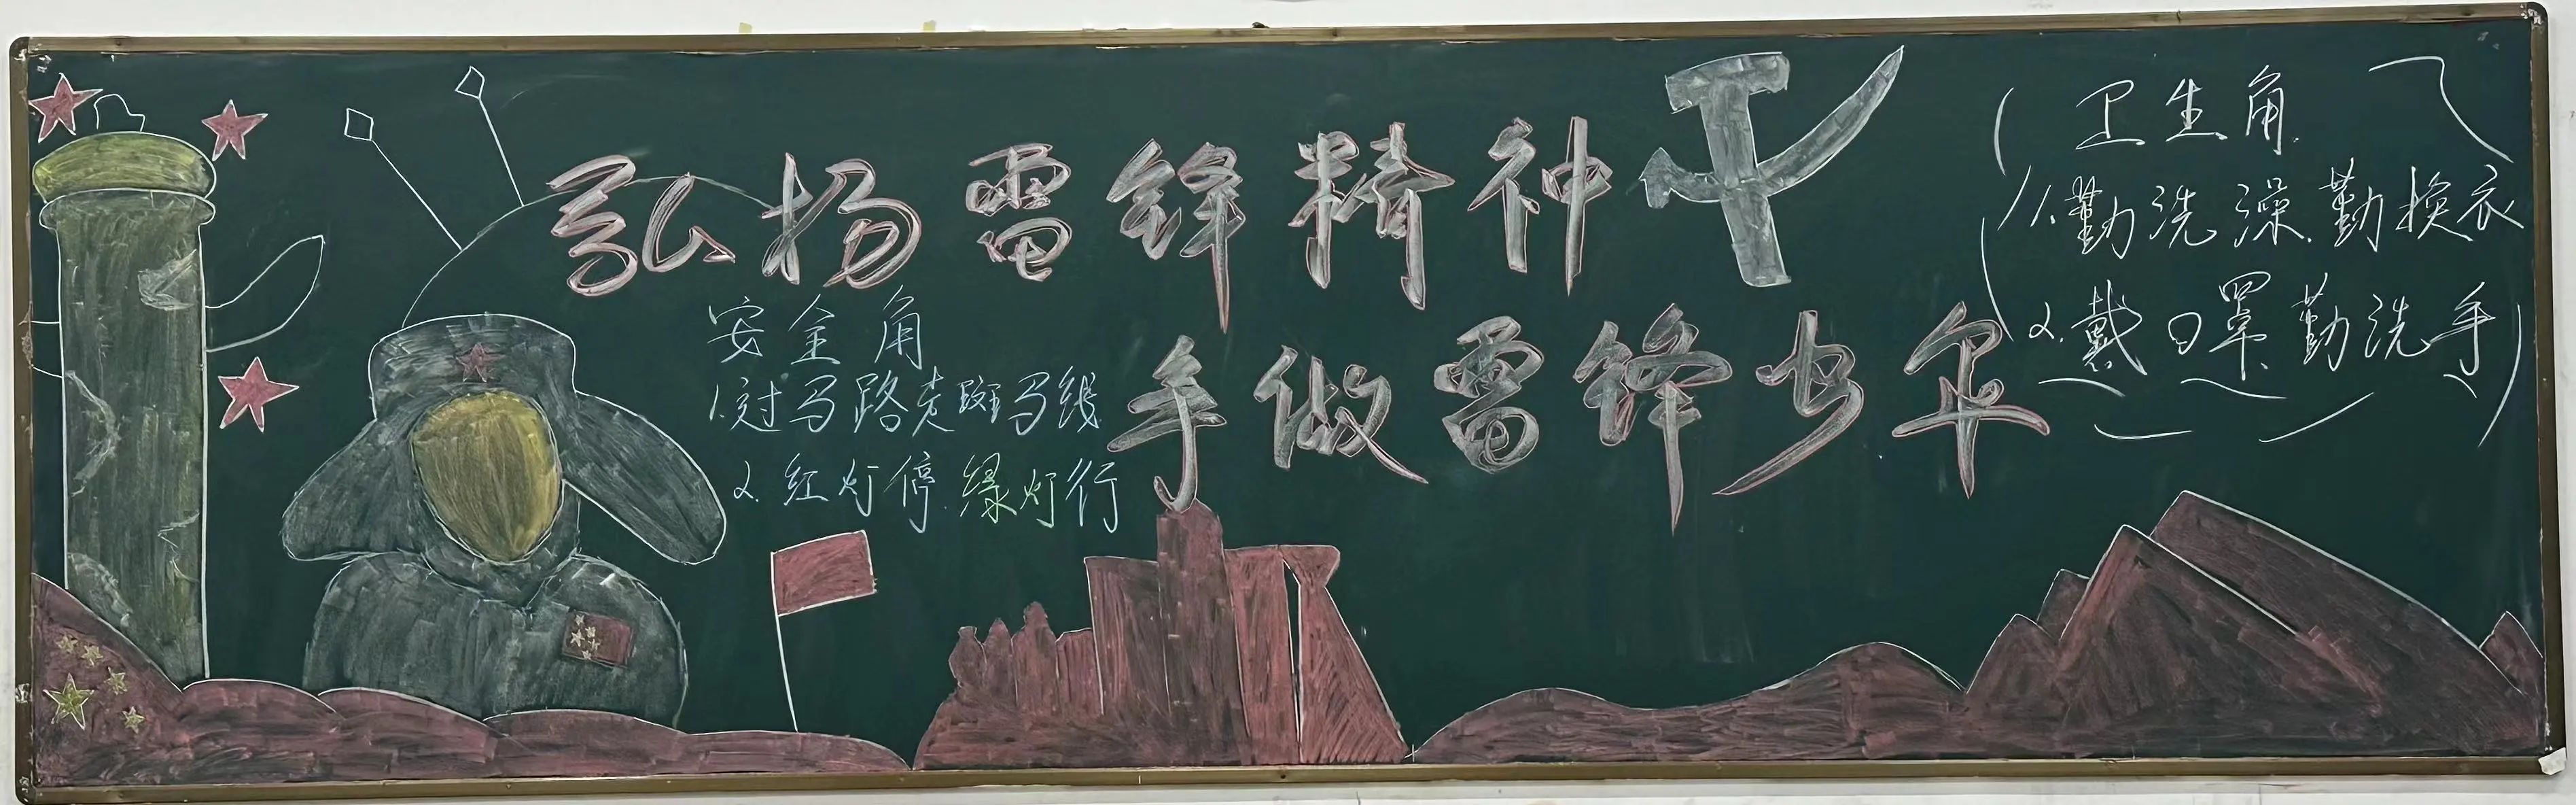 弘扬雷锋精神
争做雷锋少年
安全角
1.过马路走斑马线
2.红灯停.绿灯行
卫生角.
1.勤洗澡.勤换衣
2.戴口罩、勤洗手